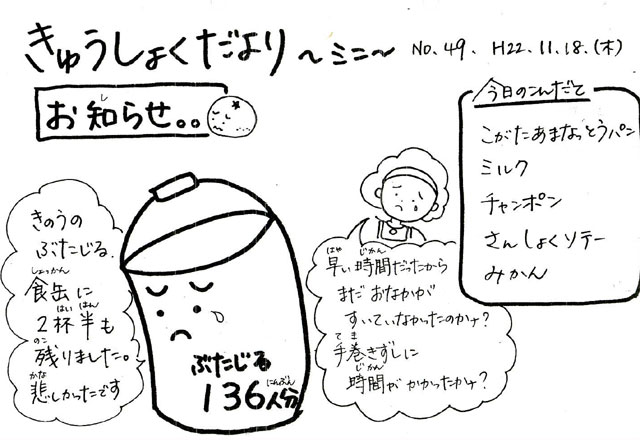 きゅうしょくだより ～ミニ～ No.49. H22.11.18.(木)
お知らせ。。
し
今日のこんだて
こがたあまなっとうパン
ミルク
チャンポン
さんしょくソテー
みかん
きのうの
ぶたじる、
しょっかん
食缶に
はい はん
2杯半も
のこ
残りました。
かな
悲しかったです
ぶたじる
にんぶん
136人分
はや じかん
早い時間だったから
まだ おなかが
すいていなかったのかナ?
てま
手巻きずしに
じかん
時間が かかったかナ?